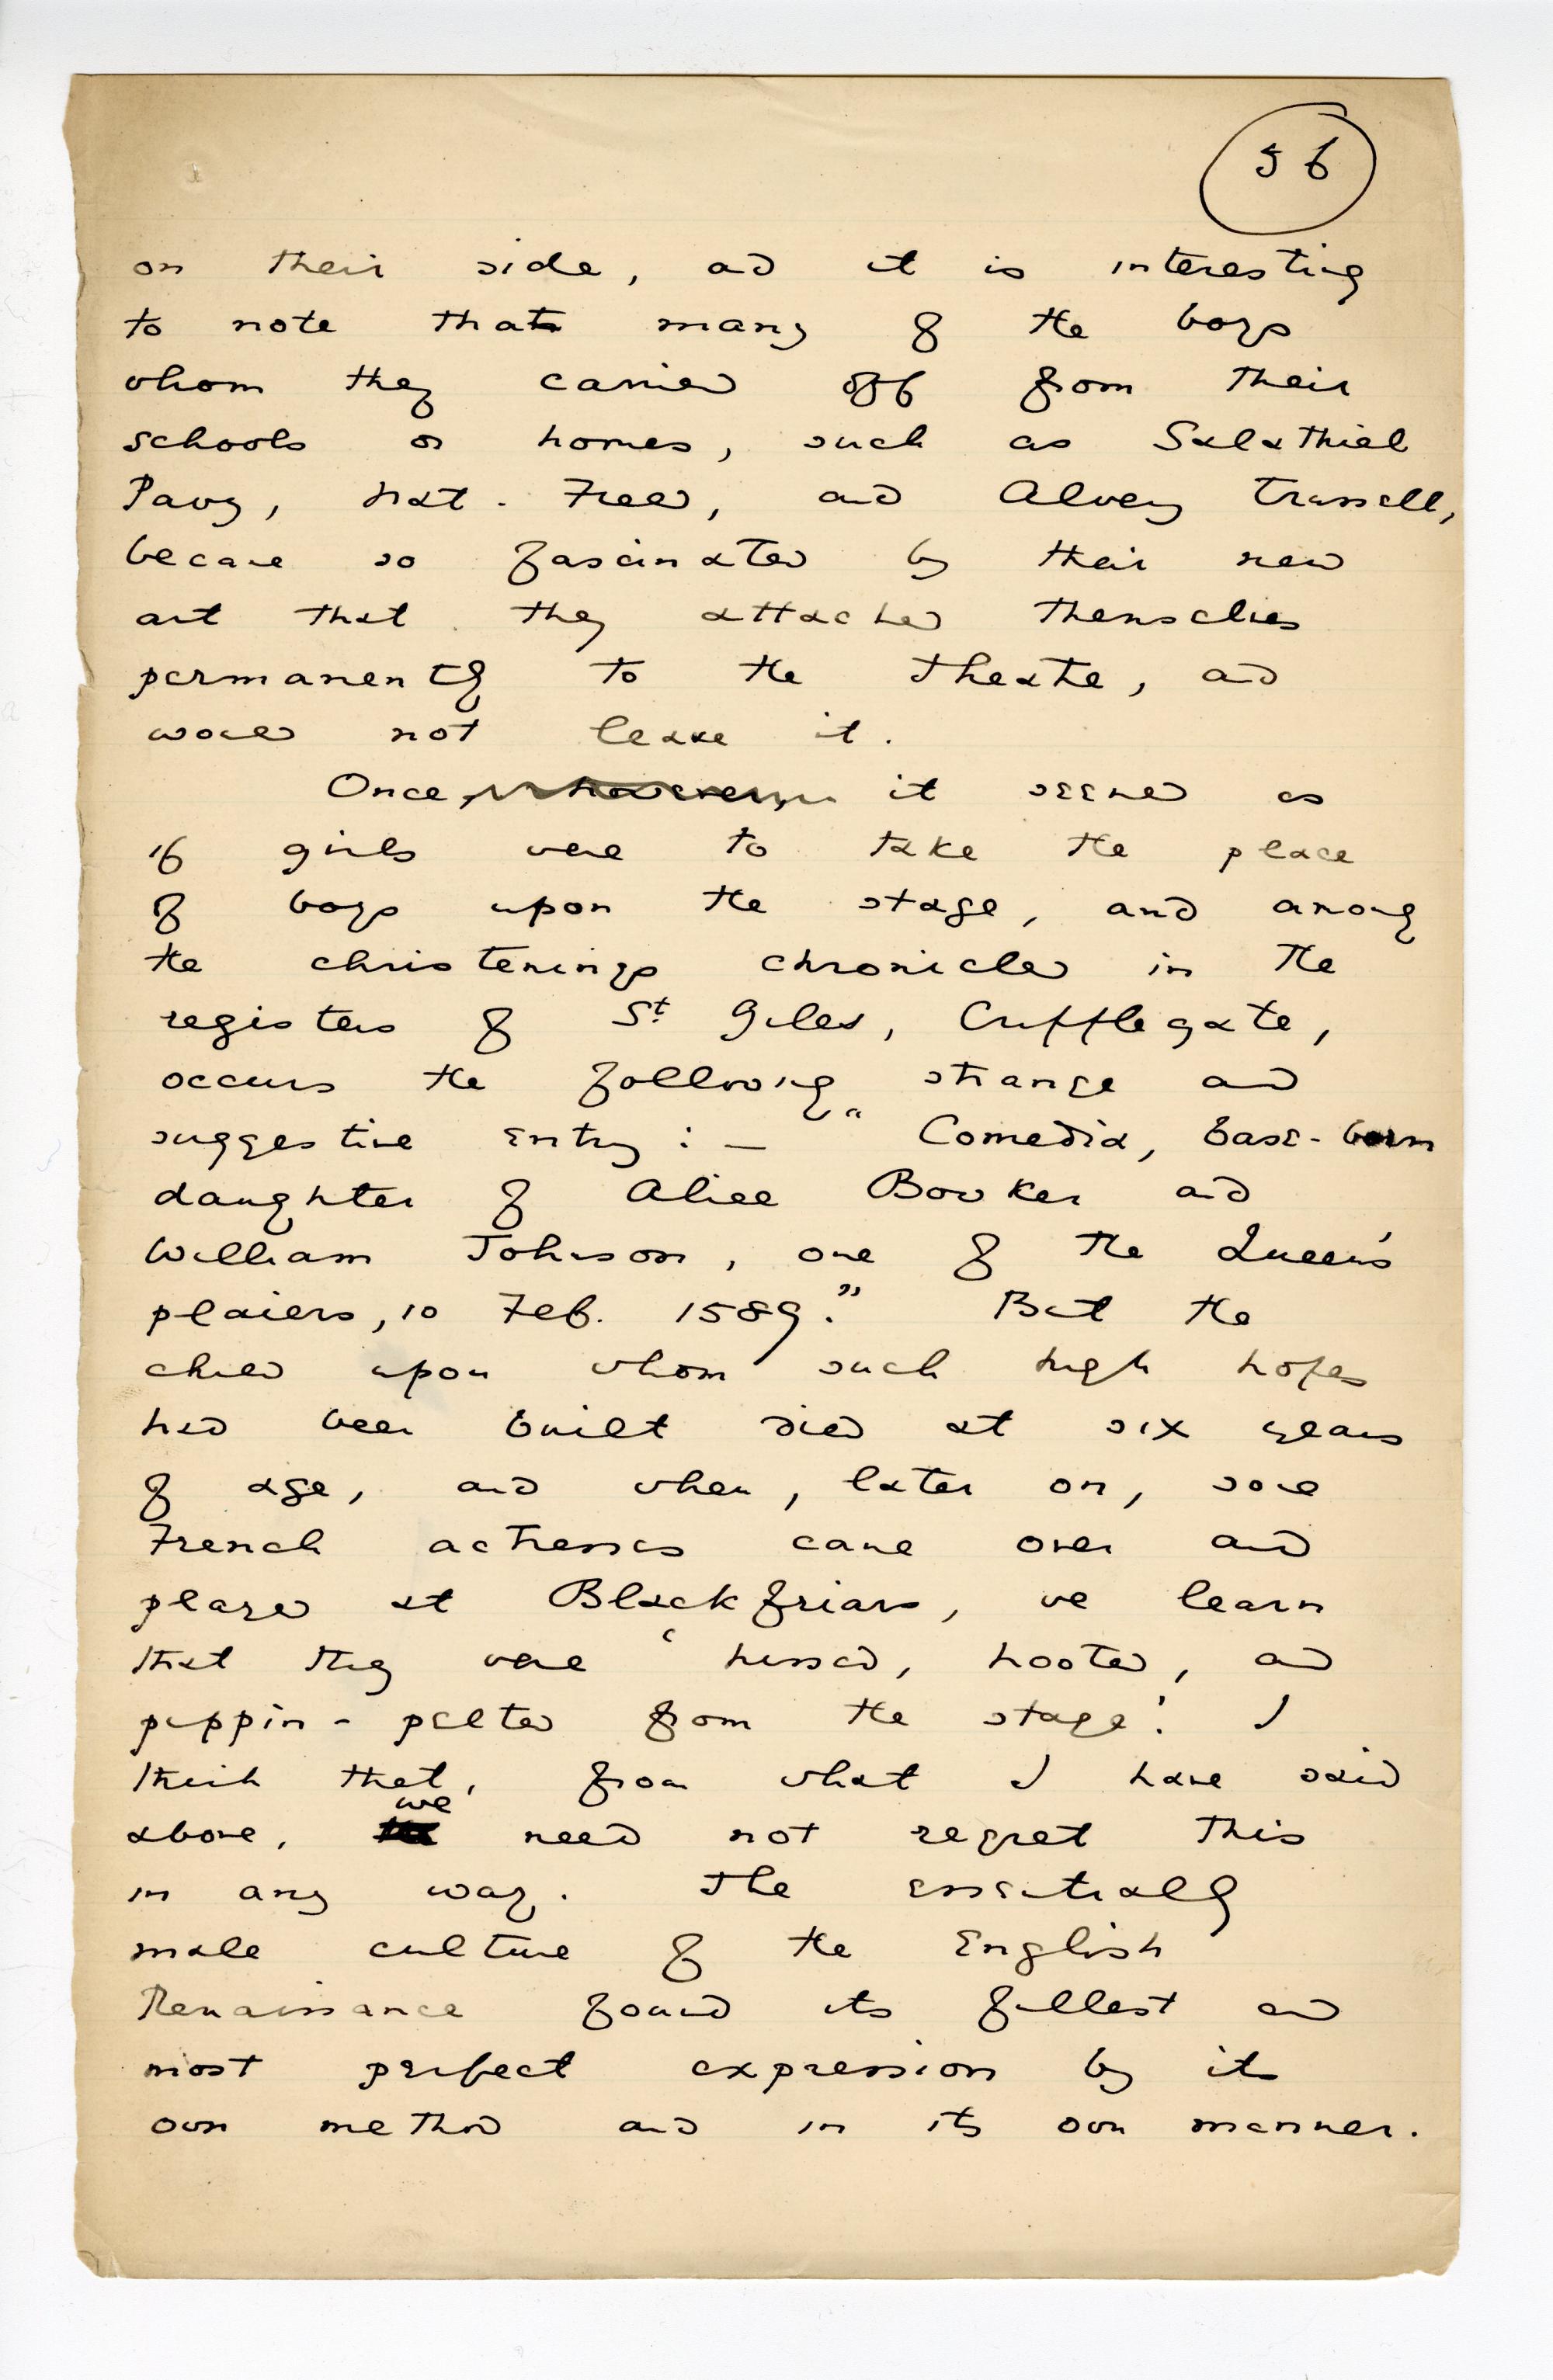 56
on their side, and it is interesting
to note that many of the boys
whom they carried off from their
schools or homes, such as Salathiel
Pavy, Nat. Field, and Alvery Trussell,
became so fascinated by their new
art that they attached themselves
permanently to the theatre, and
would not leave it.
Once, however, it seemed as
if girls were to take the place
of boys upon the stage, and among
the christenings chronicled in the
registers of St. Giles, Cripplegate,
occurs the following strange and
suggestive entry :— "Comedia, base-born
daughter of Alice Bowker and
William Johnson, one of the Queen's
plaiers, 10 Feb. 1589." But the
child upon whom such high hopes
had been built died at six years
of age, and when, later on, some
French actresses came over and
played at Blackfriars, we learn
that they were 'hissed, hooted, and
pippin-pelted from the stage.' I
think that, from what I have said
we
above, need not regret this
in any way. The essentially
male culture of the English
Renaissance found its fullest and
most perfect expression by its
own method and in its own manner.